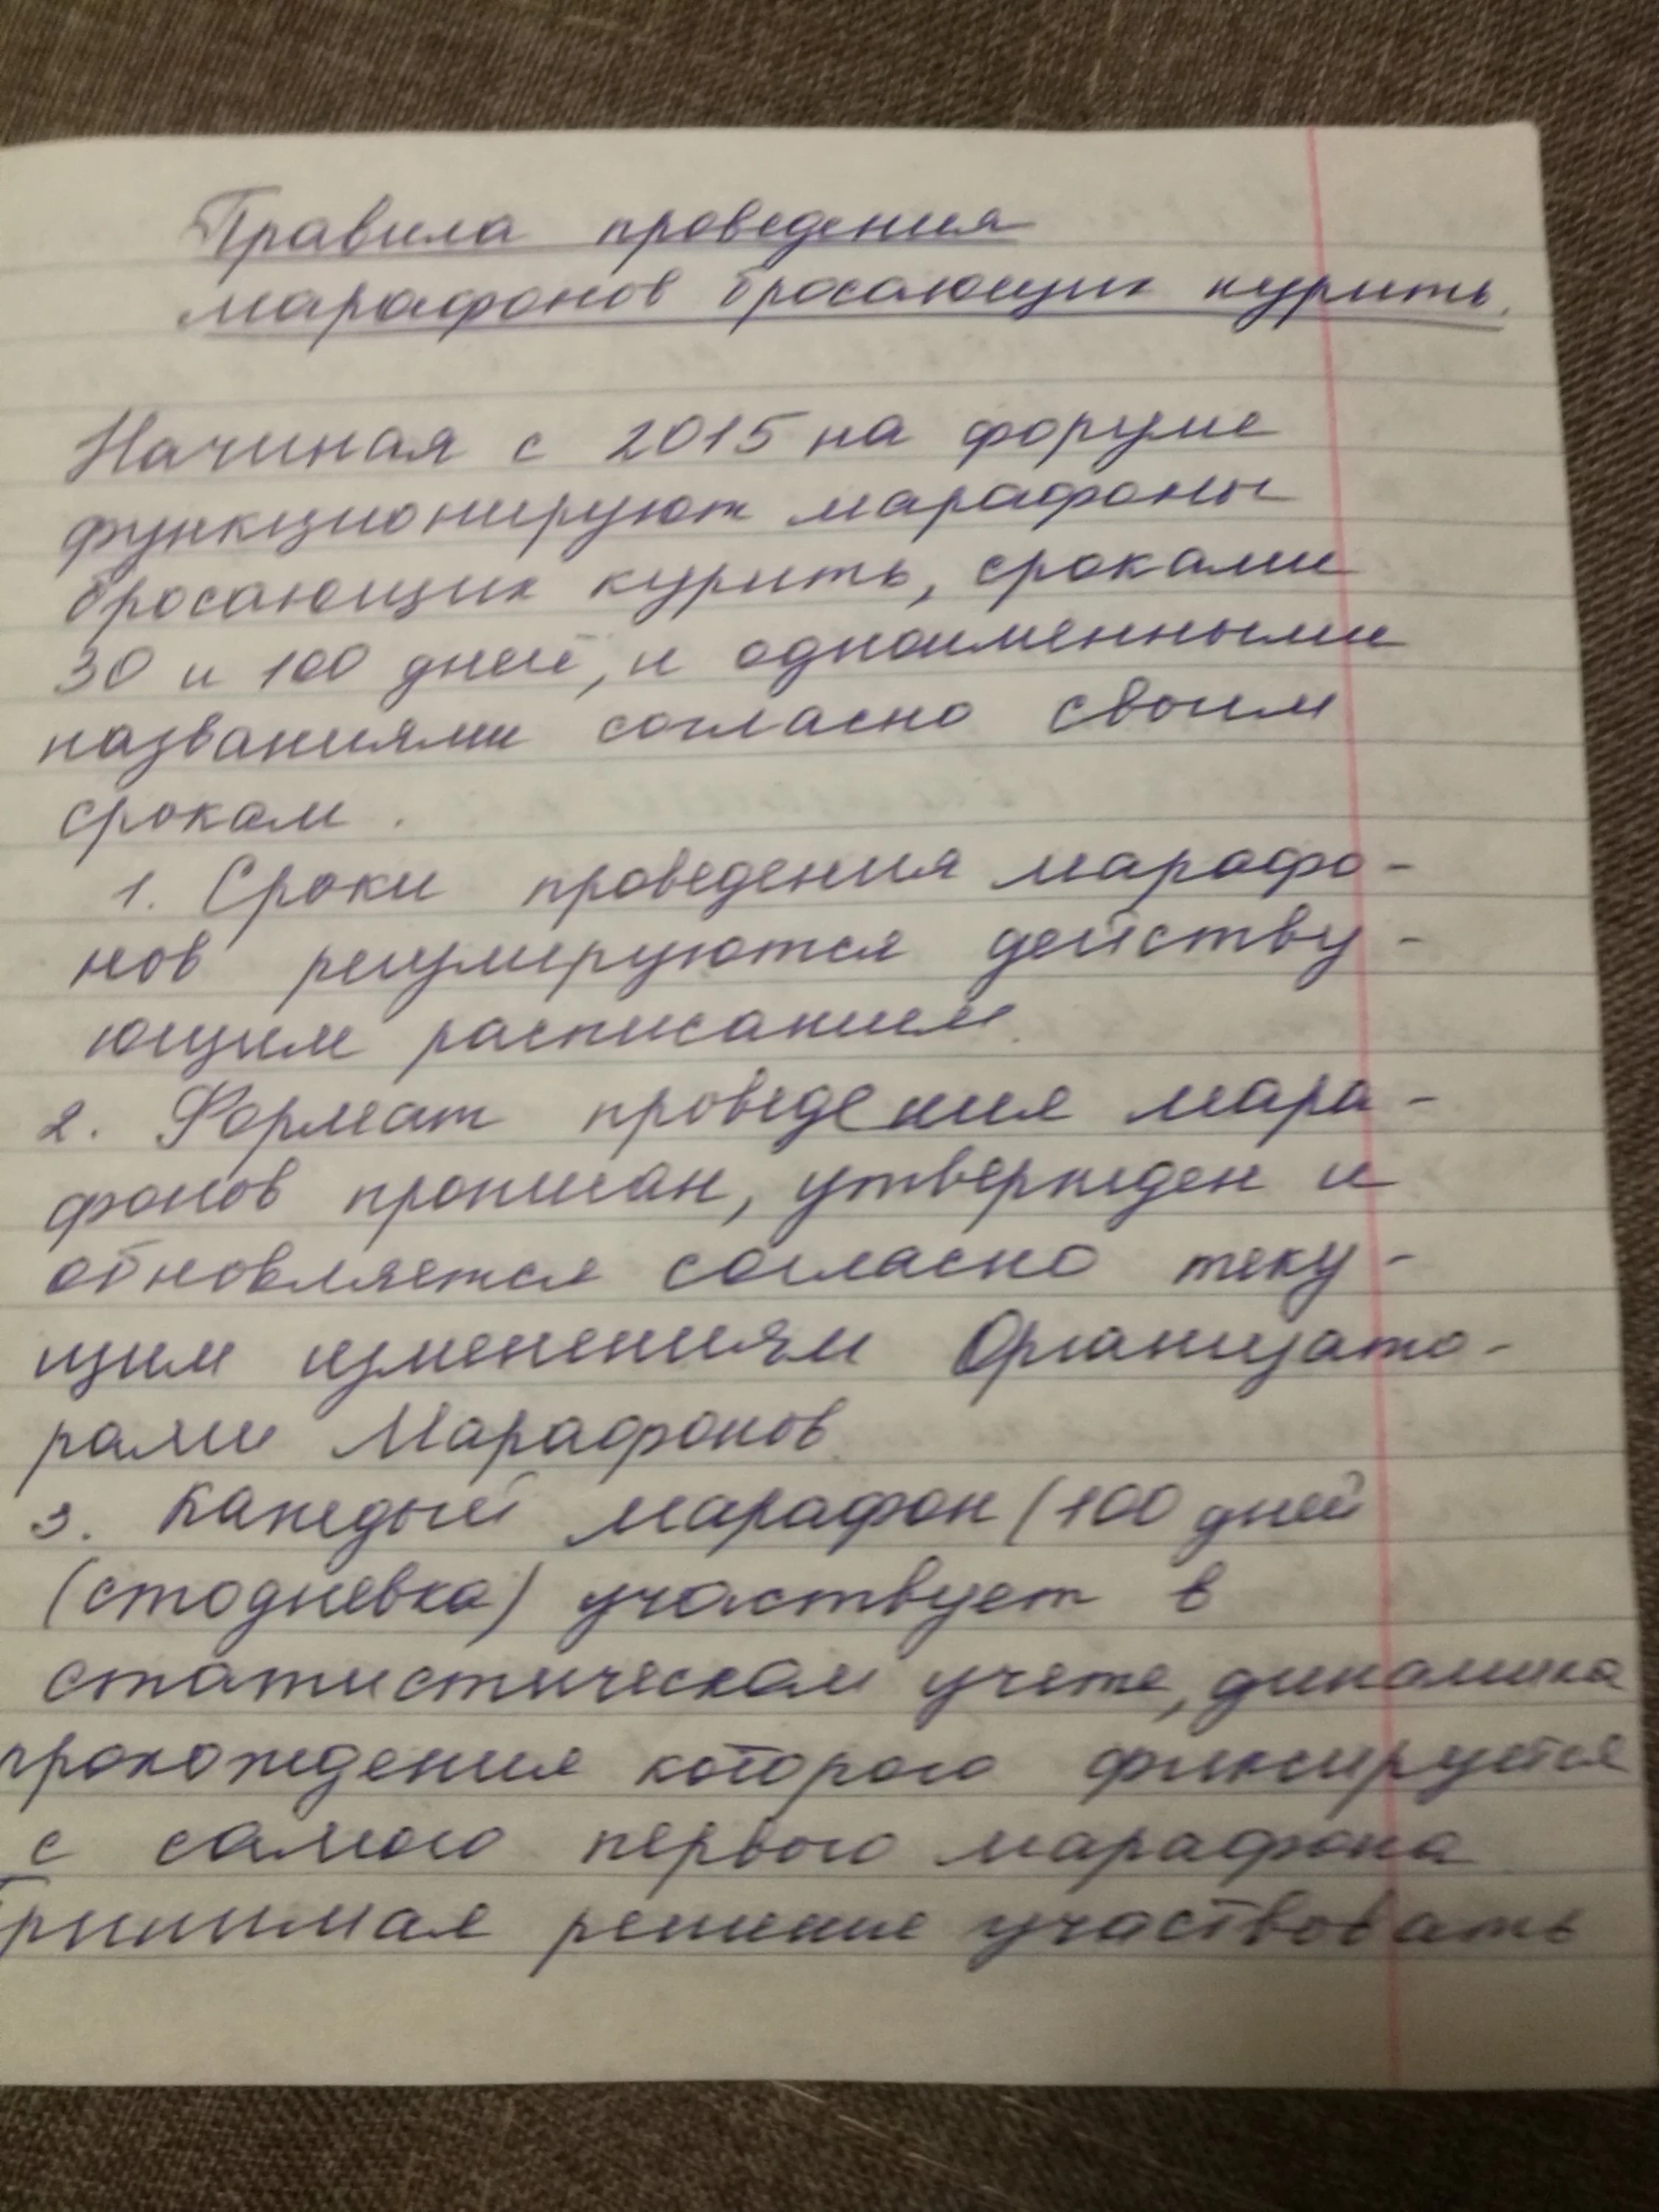 Правила проведения
марафонов бросающих курить.
Начиная с 2015 на форуме
функционируют марафоны
бросающих курить, сроками
30 и 100 дней, и одноименными
названиями согласно своим
срокам.
1. Сроки проведения марафо-
нов регулируются действу-
ющим расписанием.
2. Формат проведения мара-
фонов прописан, утвержден и
обновляется согласно теку-
щим изменениям Организато-
рами Марафонов
3. Каждый марафон (100 дней
(стодневка) участвует в
статистическом учете, динамика
прохождения которого фиксируется
с самого первого марафона
Принимая решение участвовать